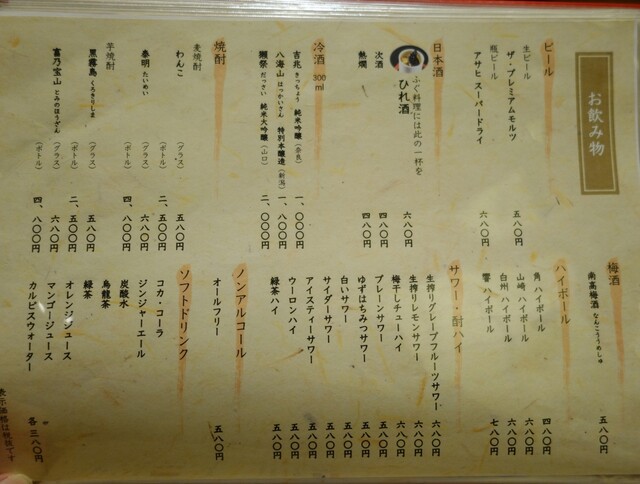 お飲み物
ビール
生ビール
ザ・プレミアムモルツ 五八〇円
瓶ビール
アサヒスーパードライ 六八〇円
日本酒
ふぐ料理には此の一杯を
ひれ酒 六八〇円
次酒 四八〇円
熱燗 四八〇円
冷酒 300ml
吉兆 きっちょう 純米吟醸(奈良) 一、〇〇〇円
八海山 はっかいさん 特別本醸造(新潟) 一、八〇〇円
獺祭 だっさい 純米大吟醸(山口) 二、〇〇〇円
焼酎
麦焼酎
わんこ (グラス) 五八〇円
(ボトル) 二、五〇〇円
泰明 たいめい (グラス) 六八〇円
(ボトル) 四、八〇〇円
芋焼酎
黒霧島 くろきりしま (グラス) 五八〇円
(ボトル) 二、五〇〇円
富乃宝山 とみのほうざん (グラス) 六八〇円
(ボトル) 四、八〇〇円
梅酒
南高梅酒 なんこううめしゅ 五八〇円
ハイボール
角 ハイボール 四八〇円
山崎 ハイボール 六八〇円
白州 ハイボール 六八〇円
響 ハイボール 七八〇円
サワー・酎ハイ
生搾りグレープフルーツサワー 六八〇円
生搾りレモンサワー 六八〇円
梅干しチューハイ 六八〇円
プレーンサワー 五八〇円
ゆずはちみつサワー 五八〇円
白いサワー 五八〇円
サイダーサワー 五八〇円
アイスティーサワー 五八〇円
ウーロンハイ 五八〇円
緑茶ハイ 五八〇円
ノンアルコール
オールフリー 五八〇円
ソフトドリンク
コカ・コーラ
ジンジャーエール
炭酸水
烏龍茶
緑茶
オレンジジュース
マンゴージュース
カルピスウォーター
各 三八〇円
表示価格は税抜です